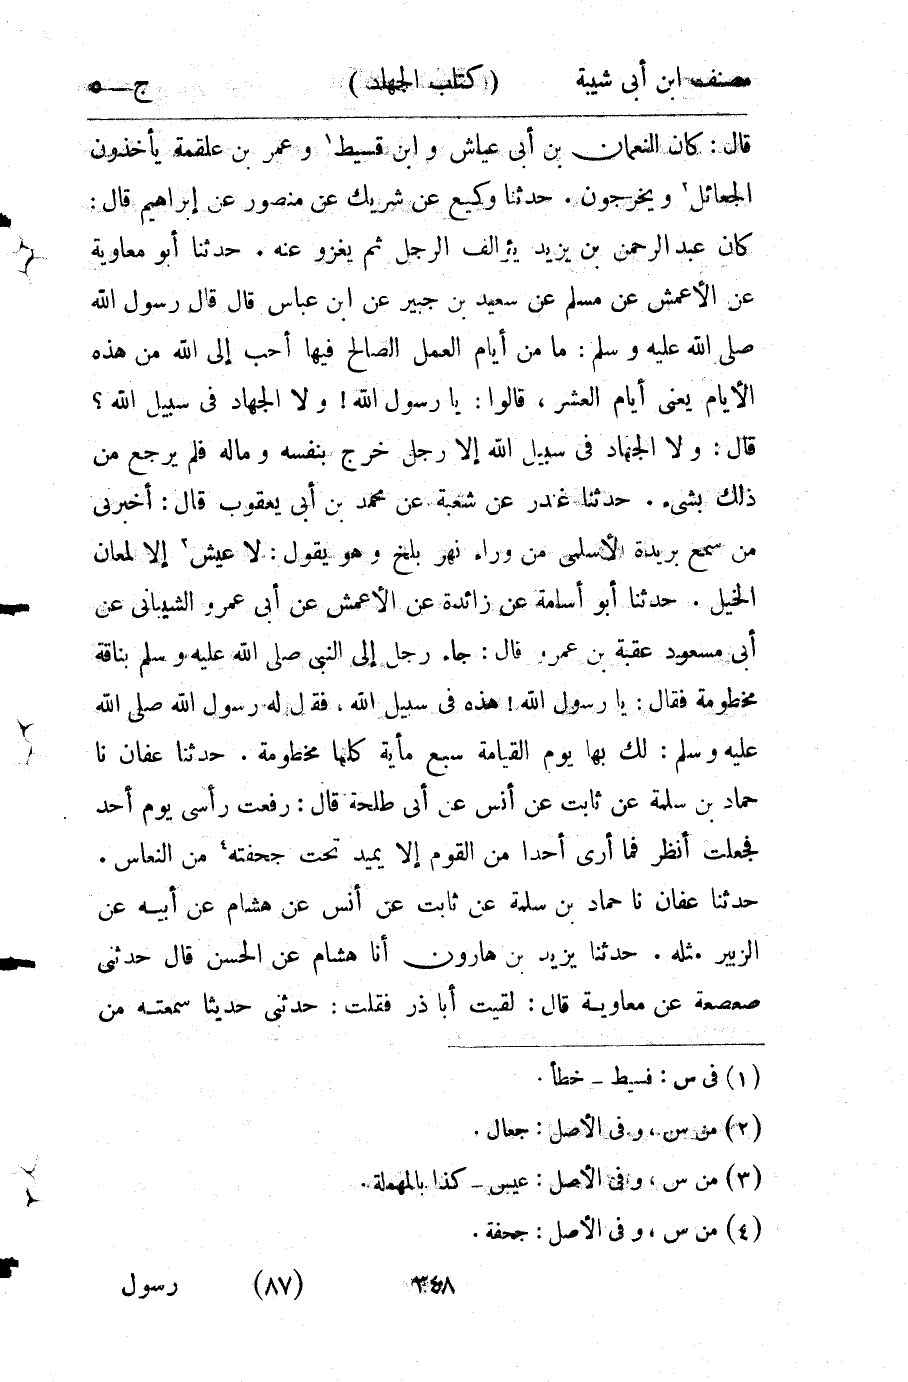 مصنف ابن أبى شيبة ( كتاب الجهاد ) ج ــ ٥
قال : كان النعمان بن أبى عياش و ابن قسيط١ و عمر بن علقمة يأخذون
الجعائل٢ و يخرجون . حدثنا وكيع عن شريك عن منصور عن إبراهيم قال :
كان عبد الرحمن بن يزيد يؤالف الرجل ثم يغزو عنه . حدثنا أبو معاوية
عن الأعمش عن مسلم عن سعيد بن جبير عن ابن عباس قال قال رسول الله
صلى الله عليه و سلم : ما من أيام العمل الصالح فيها أحب إلى الله من هذه
الأيام يعنى أيام العشر ، قالوا : يا رسول الله ! و لا الجهاد فى سبيل الله ؟
قال : و لا الجهاد فى سبيل الله إلا رجل خرج بنفسه و ماله فلم يرجع من
ذلك بشىء . حدثنا غندر عن شعبة عن محمد بن أبى يعقوب قال : أخبرنى
من سمع بريدة الأسلمى من وراء نهر بلخ و هو يقول : لا عيش٣ إلا لمعان
الخيل . حدثنا أبو أسامة عن زائدة عن الأعمش عن أبى عمرو الشيبانى عن
أبى مسعود عقبة بن عمرو قال : جاء رجل إلى النبى صلى الله عليه و سلم بناقة
مخطومة فقال : يا رسول الله ! هذه فى سبيل الله ، فقال له رسول الله صلى الله
عليه و سلم : لك بها يوم القيامة سبع مأية كلها مخطومة . حدثنا عفان نا
حماد بن سلمة عن ثابت عن أنس عن أبى طلحة قال : رفعت رأسى يوم أحد
فجعلت أنظر فما أرى أحدا من القوم إلا يميد تحت جحفته٤ من النعاس .
حدثنا عفان نا حماد بن سلمة عن ثابت عن أنس عن هشام عن أبيه عن
الزبير مثله . حدثنا يزيد بن هارون أنا هشام عن الحسن قال حدثنى
صعصعة عن معاوية قال : لقيت أبا ذر فقلت : حدثنى حديثا سمعته من
(١) فى س : فسيط ــ خطأ .
(٢) من س ، و فى الأصل : جعال .
(٣) من س ، و فى الأصل : عيس ــ كذا بالمهملة .
(٤) من س ، و فى الأصل : جحفة .
٣٤٨ (٨٧) رسول